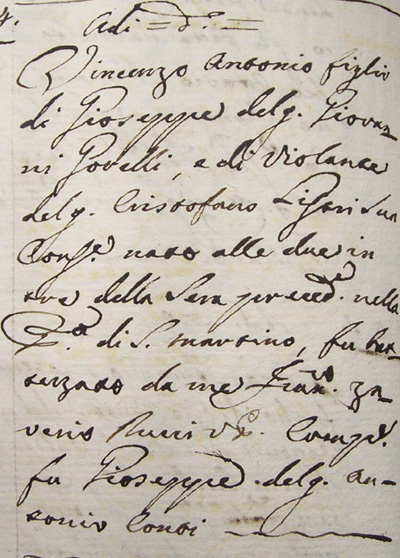 4. Adi = d.º =
Vincenzo Antonio figlio
di Giuseppe del q. Giovan
ni Govelli, e di Violante
del q. Cristofano Lipari sua
Cons.e nato alle due in
ore della Sera preced. nella
di S. Martino, fu bat
tezzato da me Fran.co Za
verio Ricci Comp.e
fu Gioseppe del q. An=
tonio Conti